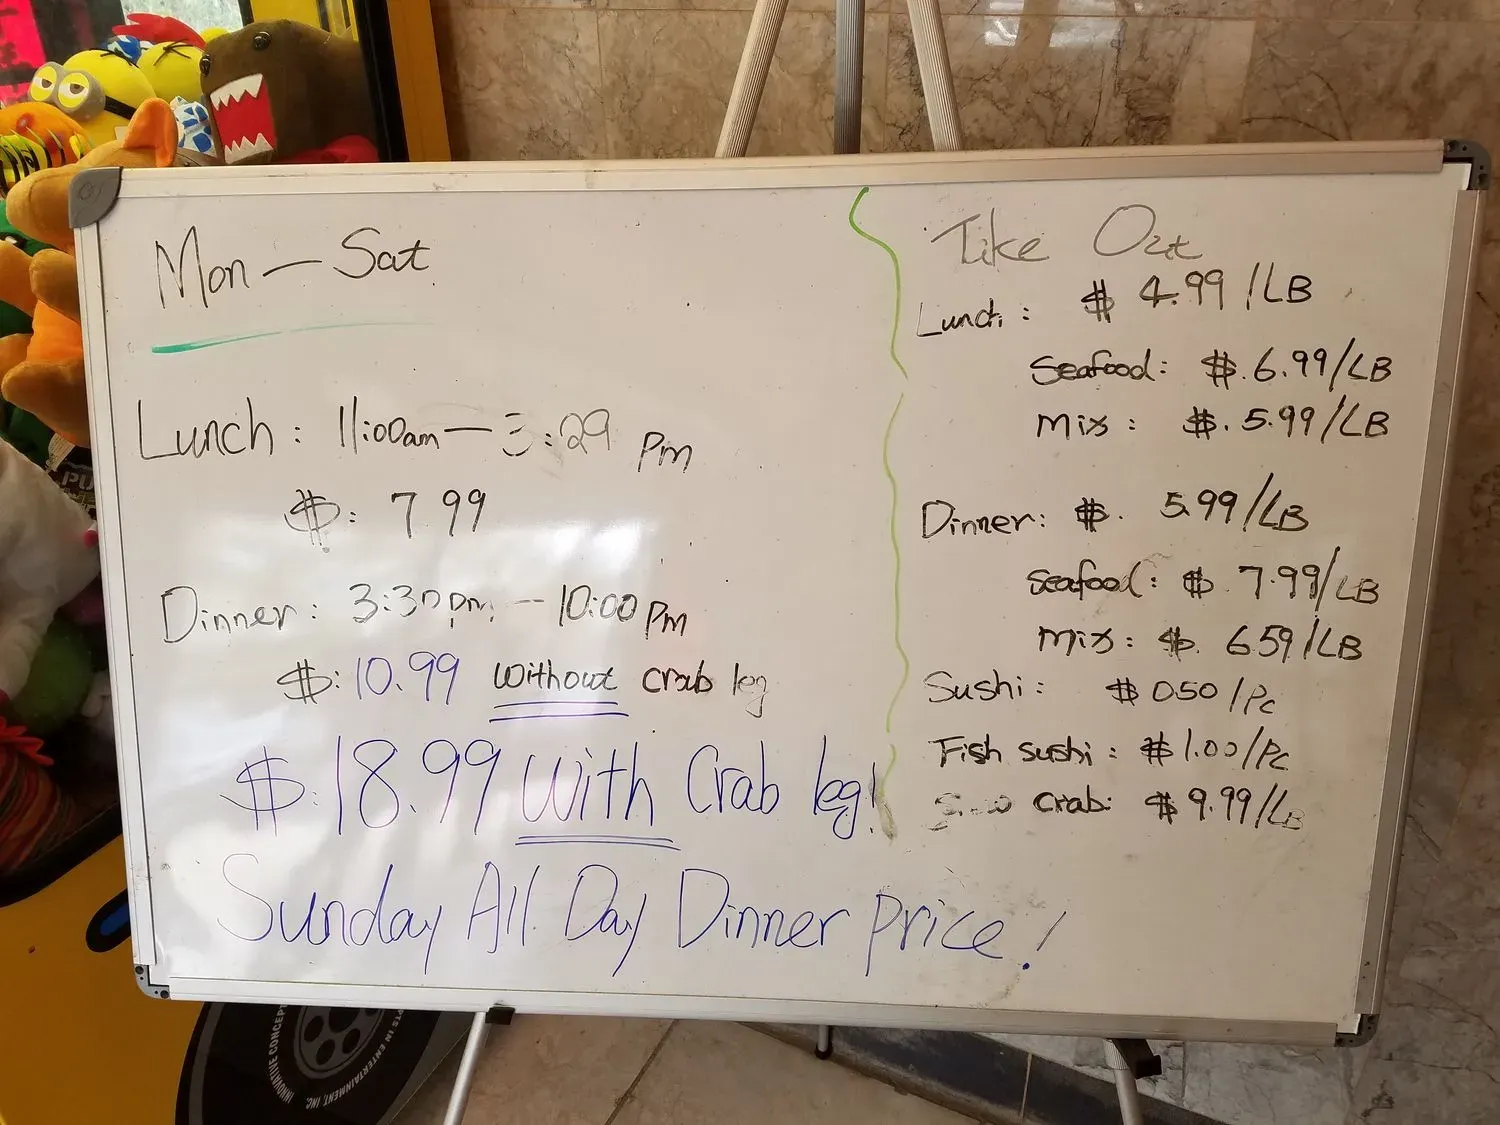 Mon — Sat
Lunch : 11:00am — 3:29 Pm
$: 7.99
Dinner : 3:30 Pm — 10:00 Pm
$: 10.99 without crab leg
$: 18.99 With Crab leg!
Sunday All Day Dinner Price!
Take Out
Lunch : $ 4.99 / LB
Seafood : $. 6.99 / LB
Mix : $. 5.99 / LB
Dinner : $. 5.99 / LB
Seafood : $ 7.99 / LB
Mix : $. 6.59 / LB
Sushi : $ 0.50 / Pc
Fish sushi : $ 1.00 / Pc
crab: $ 9.99 / LB
INNOVATIVE CONCEPTS IN ENTERTAINMENT, INC.
PU